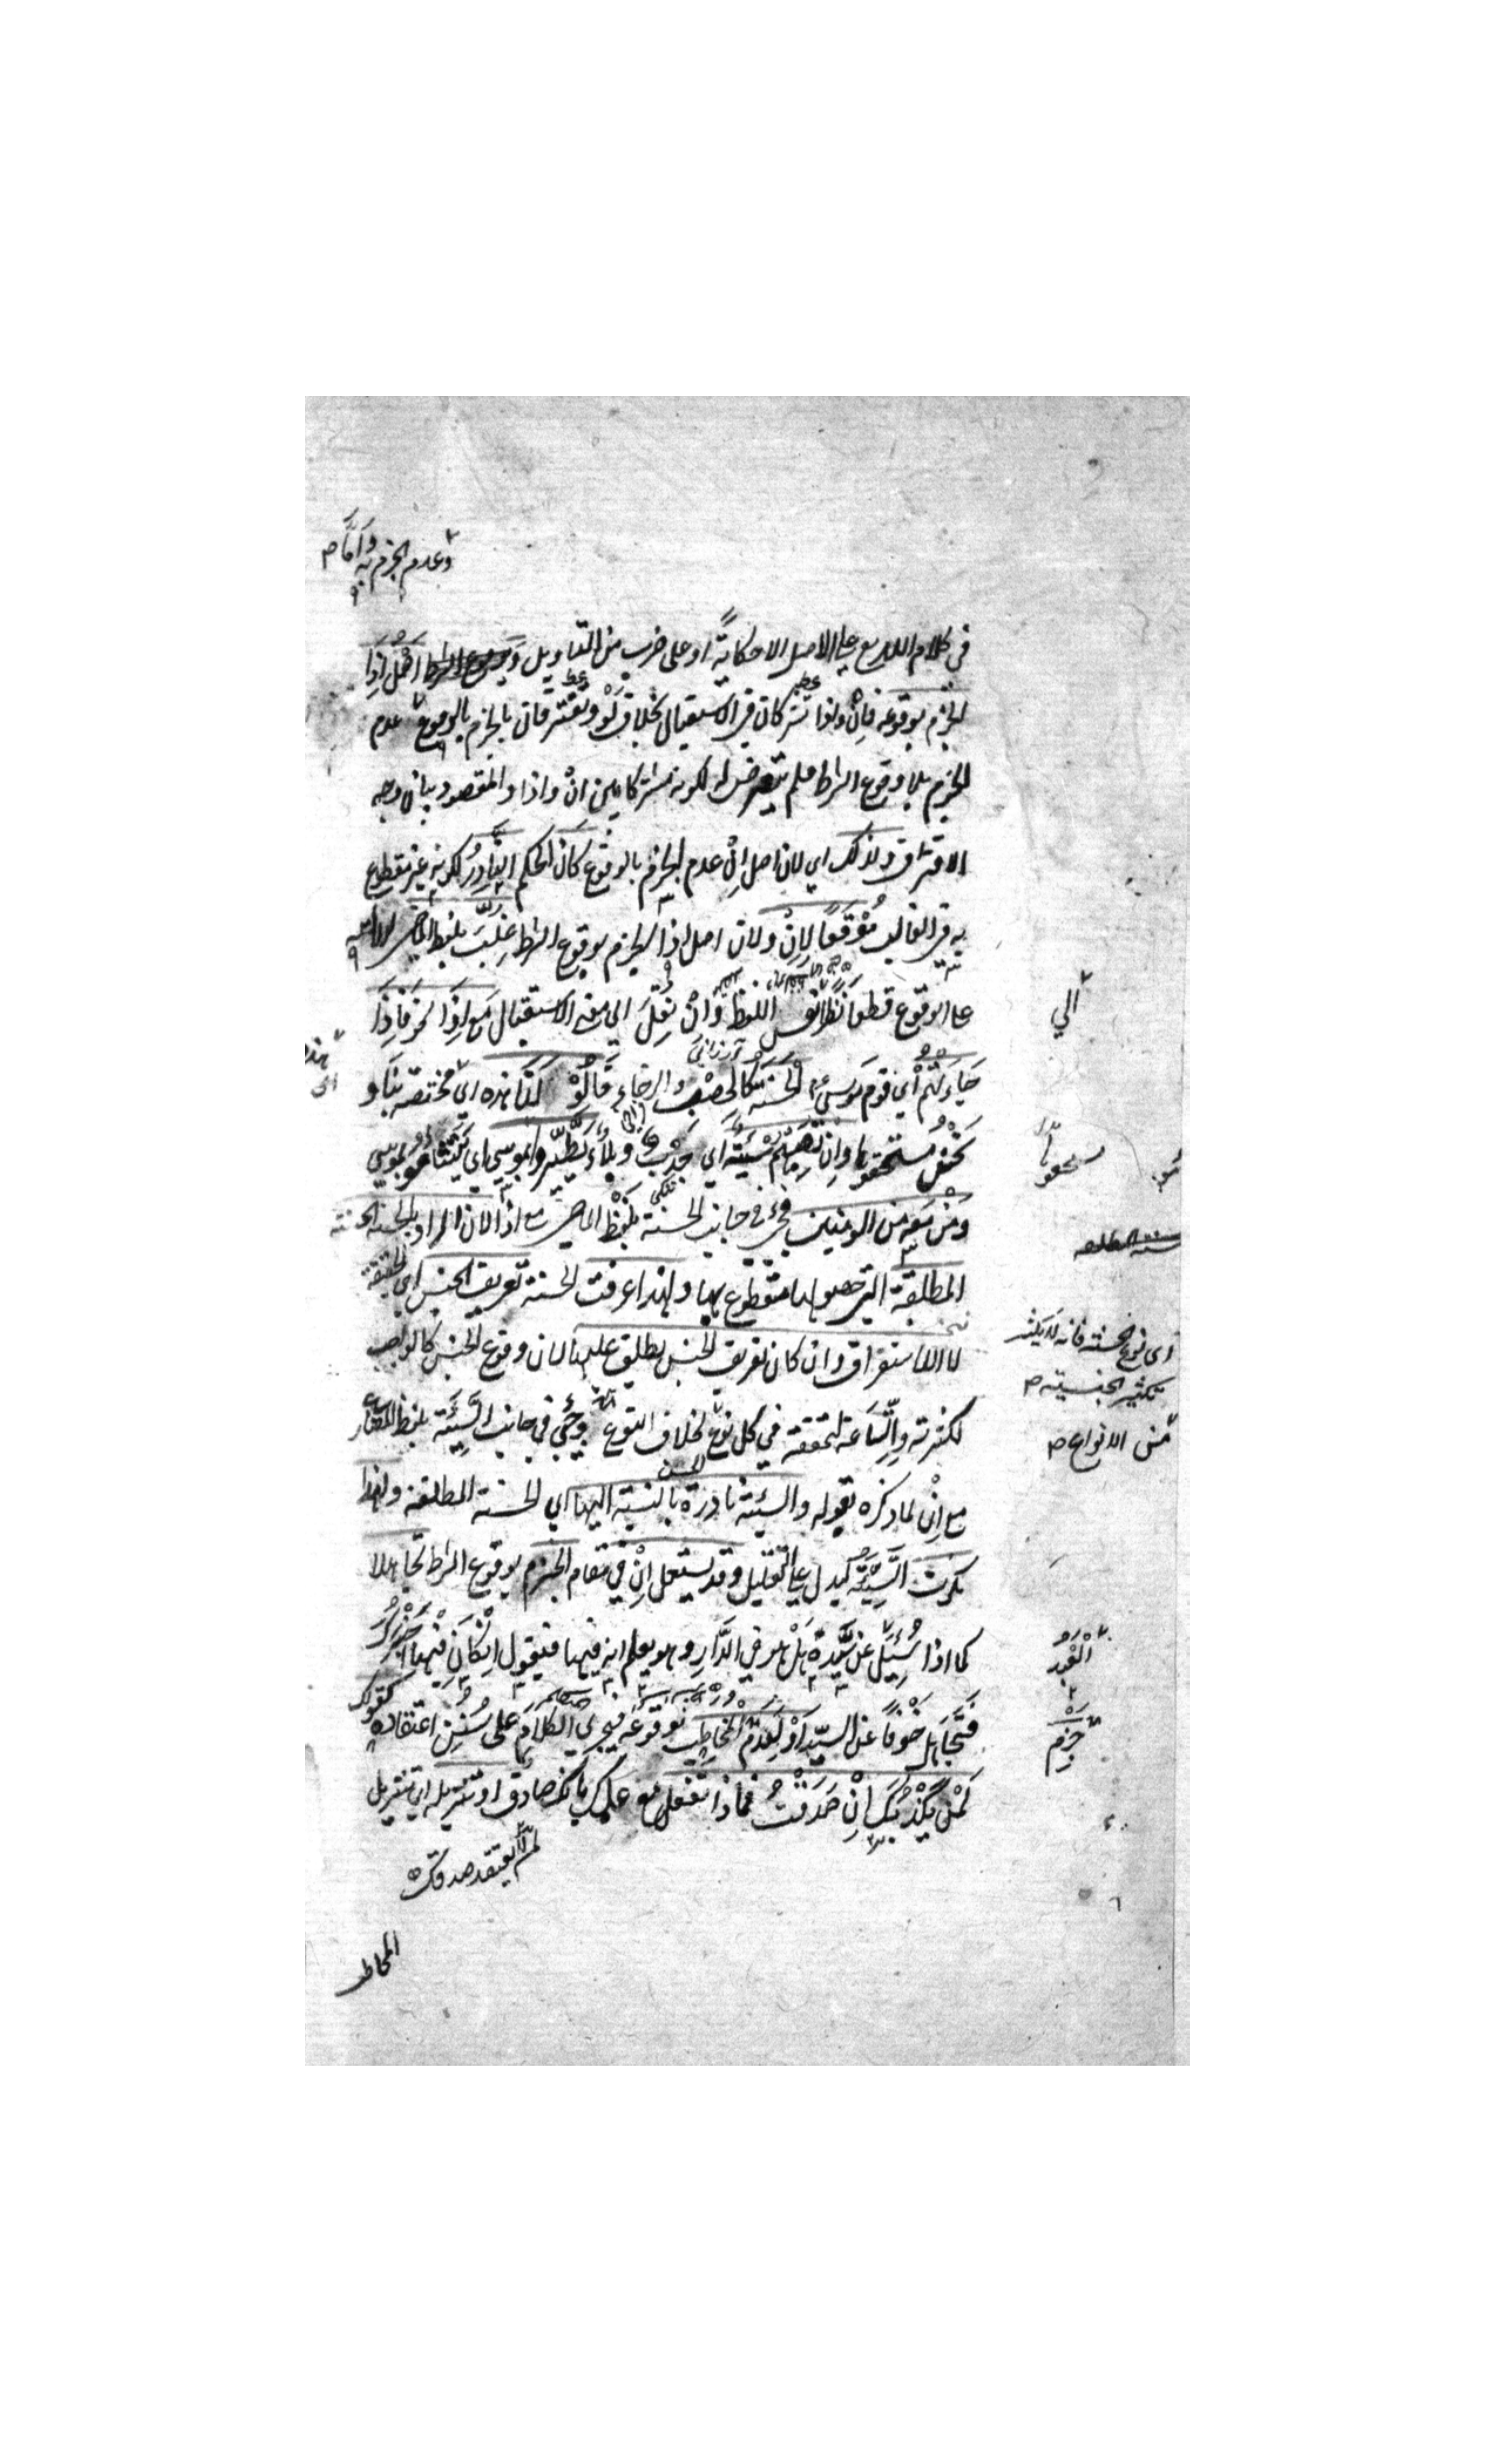 وعدم الجزم به وأمّا
في كلام الله تع على الاصل الا حكايةً او على ضرب من التاويل و اصل اذا
الجزم بوقوعه فان واذا تشتركان في الاستقبال بخلاف لو وتفترقان بالجزم بالوقوع عدم
الجزم بلا وقوع الشرط فلم يتعرض له لكونه مشتركا بين ان واذا والمقصود بيان وجه
الافتراق ولذلك اي لان اصل ان عدم الجزم بالوقوع كان الحكم النادر لكونه غير مقطوع
به في الغالب موقعا لان ولان اصل اذا الجزم بوقوع الشرط غلب بلفظ الماضي
على الوقوع قطعا نظرا نفس اللفظ وان نقل الى معنى الاستقبال مع اذا نحو فاذا
الي
جاءتهم اي قوم موسى الحسنة كالخصب والرخاء قالوا لنا هذه اي مختصة بنا و
نحن مستحقوها وان تصبهم سيئة اي جدب وبلاء يطيروا بموسى اي يتشاءموا بموسى
ومن معه من المومنين فجيء في جانب الحسنة بلفظ الماضي مع اذا لان المراد بالحسنة الحسنة
المطلقة التي حصولها مقطوع بها ولهذا عرفت الحسنة تعريف الجنس اي الحقيقة
لا الاستغراق وان كان تعريف الجنس يطلق عليها لان وقوع الجنس كالواجب
اى نوع الحسنة فانه لا يكثر
تكثير الجنسية
لكثرته واتساعه لتحققه في كل نوع بخلاف النوع وجيء في جانب السيئة بلفظ المضارع
من الانواع
مع ان لما ذكره بقوله والسيئة نادرة بالنسبة اليها اي الحسنة المطلقة ولهذا
نكرت السيئة ليدل على التقليل وقد يستعمل ان في مقام الجزم بوقوع الشرط تجاهلا
كما اذا سئل عن سيده هل هو في الدار وهو يعلم انه فيها فيقول ان كان فيها اخبرك
العبد
فتجاهل خوفا عن السيد او لعدم المخاطب بوقوعه فيجري الكلام على سنن اعتقاده كقولك
جزم
لمن يكذبك ان صدقت فماذا تفعل مع علمك بانك صادق او تنزيله اي تنزيل
لم يعتقد صدقك
المخاطب